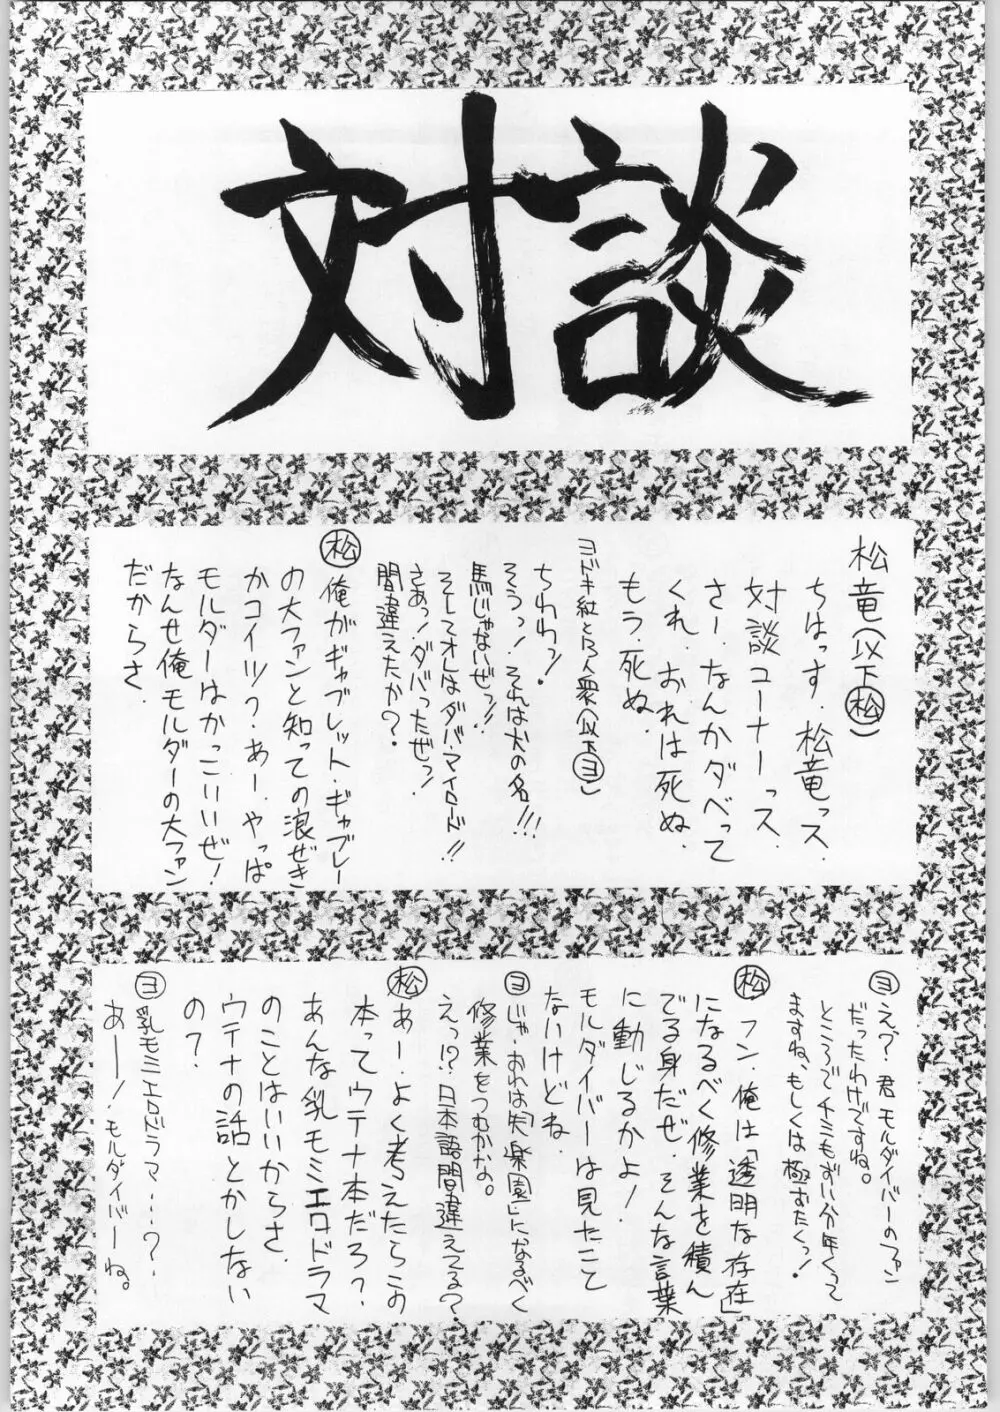 対談
松竜(以下松)
ちはっす.松竜っス.
対談コーナーっス.
さー.なんかダベって
くれ.おれは死ぬ.
もう.死ぬ.
ちわわっ!
そうっ!それは犬の名!!!
馬じゃないぜっ!!
そしてオレはダバ・マイロード!!
さあっ!ダバったぜっ!
間違えたか?.
松 俺がギャブレット・ギャブレー
の大ファンと知っての浪ぜき
かコイツ?.あー.やっぱ
モルダーはかっこいいぜ!
なんせ俺モルダーの大ファン
だからさ.
ヨ えっ?.君モルダイバーのファン
だったわけですね。
ところでチミもずい分年くって
ますね、もしくは極おたくっ!
松 フン.俺は「透明な存在」
になるべく修業を積ん
でる身だぜ.そんな言葉
に動じるかよ!
モルダイバーは見たこと
ないけどね.
ヨ じゃ.おれは「失楽園」になるべく
修業をつむかな。
えっ!?日本語間違えてる?.
松 あー.よく考えたらこの
本ってウテナ本だろ?.
あんな乳モミエロドラマ
のことはいいからさ.
ウテナの話とかしない
の?.
ヨ 乳モミエロドラマ・・・?.
あー!.モルダイバーね。